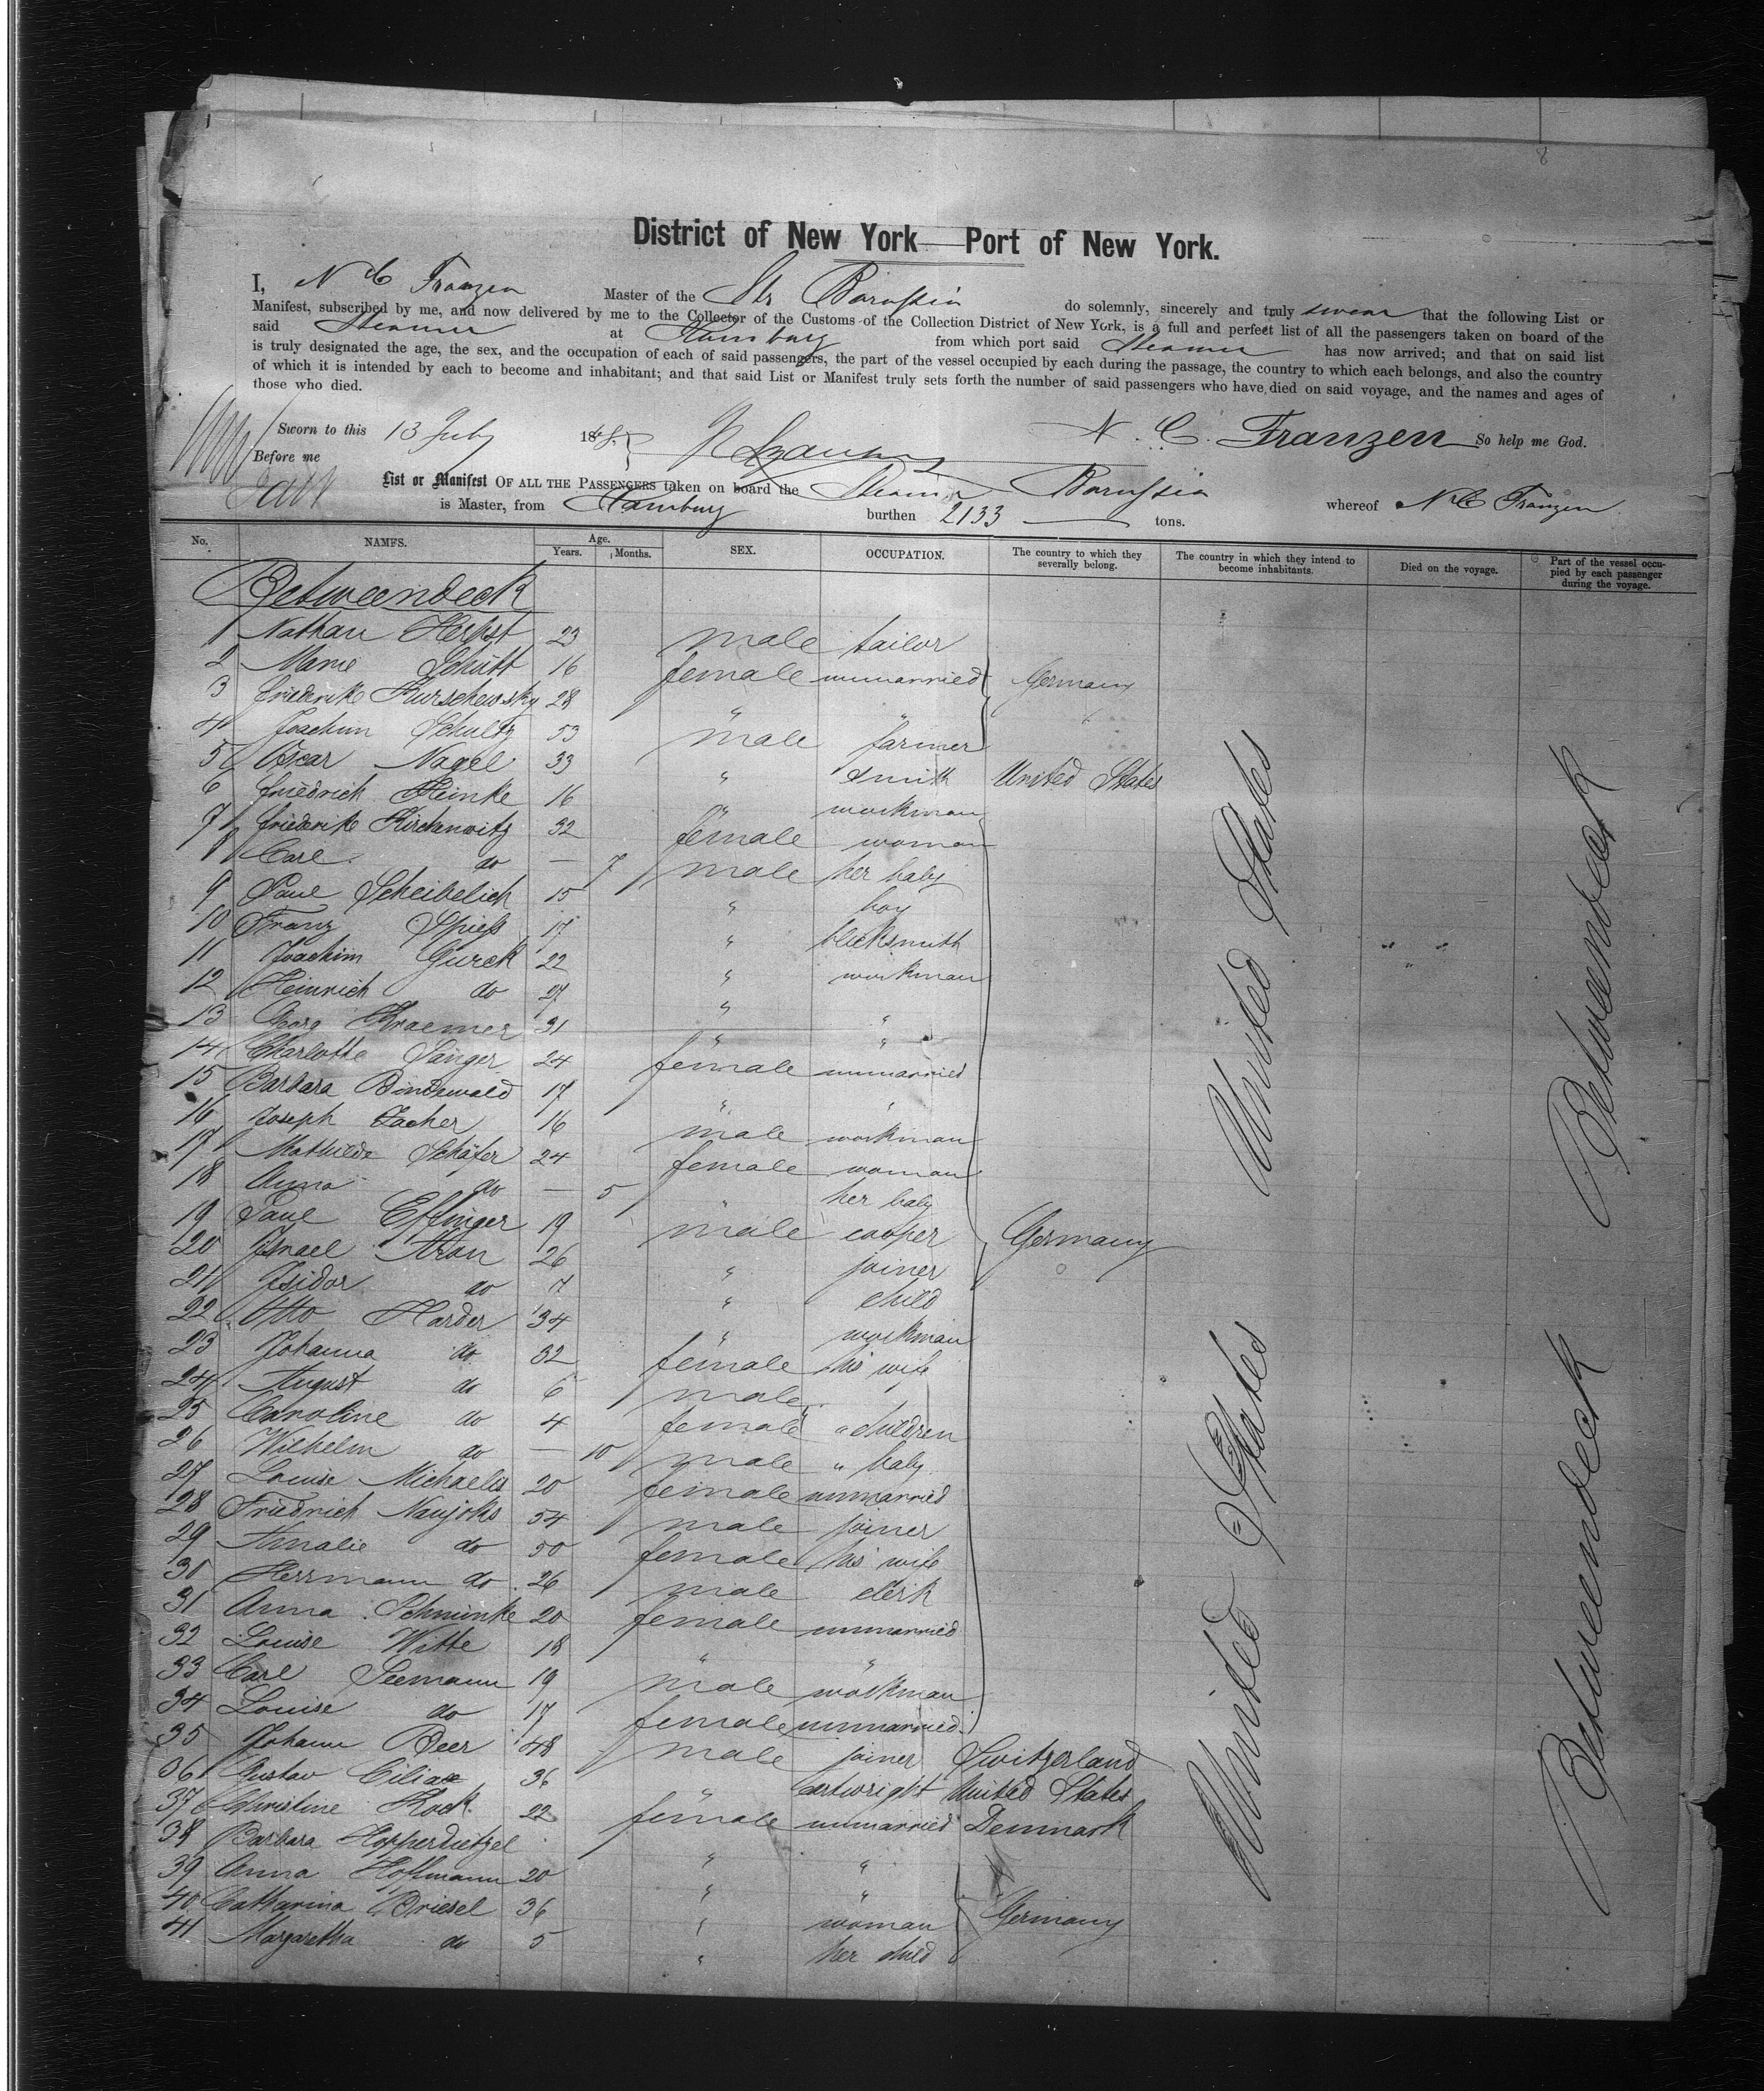 8
District of New York Port of New York.
I, N C Franzen Master of the Str Borussia do solemnly, sincerely and truly swear that the following List or
Manifest, subscribed by me, and now delivered by me to the Collector of the Customs of the Collection District of New York, is a full and perfect list of all the passengers taken on board of the
said Steamer at Hamburg from which port said Steamer has now arrived; and that on said list
is truly designated the age, the sex, and the occupation of each of said passengers, the part of the vessel occupied by each during the passage, the country to which each belongs, and also the country
of which it is intended by each to become and inhabitant; and that said List or Manifest truly sets forth the number of said passengers who have died on said voyage, and the names and ages of
those who died.
Sworn to this 13 July 18 N. C. Franzen So help me God.
Before me
List or Manifest OF ALL THE PASSENGERS taken on board the Steamer Borussia whereof N C Franzen
is Master, from Hamburg burthen 2133 tons.
No. NAMES. Age. Years. Months. SEX. OCCUPATION. The country to which they severally belong. The country in which they intend to become inhabitants. Died on the voyage. Part of the vessel occupied by each passenger during the voyage.
Betweendeck
1 Nathan Herbst 23 male tailor
2 Marie Schütt 16 female unmarried Germany
3 Friederike Kurschewsky 28 " "
4 Joachim Schultz 53 male farmer
5 Oscar Nagel 33 " smith United States
6 Friedrich Heinke 16 " workman
7 Friederike Kirschnowitz 32 female woman
8 Carl do — 7 male her baby
9 Paul Scheibelich 15 " boy
10 Franz Spiess 17 " blecksmith
11 Joachim Gurck 22 " workman
12 Heinrich do 27 " "
13 Georg Kraemer 31 " "
14 Charlotte Sänger 24 female unmarried
15 Barbara Bindewald 17 " "
16 Joseph Zacher 16 male workman
17 Mathilde Schäfer 24 female woman
18 Anna do — 5 " her baby
19 Paul Effinger 19 male cooper Germany
20 Israel Aron 26 " joiner
21 Isidor do 7 " child
22 Otto Harder 34 " workman
23 Johanna do 32 female his wife
24 August do 6 male
25 Caroline do 4 female " children
26 Wilhelm do — 10 male " baby
27 Louise Michaelis 20 female unmarried
28 Friedrich Naujoks 54 male joiner
29 Amalie do 50 female his wife
30 Herrmann do 26 male clerk
31 Anna Schminke 20 female unmarried
32 Louise Witte 18 " "
33 Carl Seemann 19 male workman
34 Louise do 17 female unmarried
35 Johann Beer 48 male joiner Switzerland
36 Gustav Ciliax 36 " Cartwright United States
37 Christine Kock 22 female unmarried Denmark
38 Barbara Hopperdietzel " "
39 Anna Hoffmann 20 " "
40 Catharina Briesel 36 " woman Germany
41 Margaretha do 5 " her child
United States
United States
Betweendeck
Betweendeck